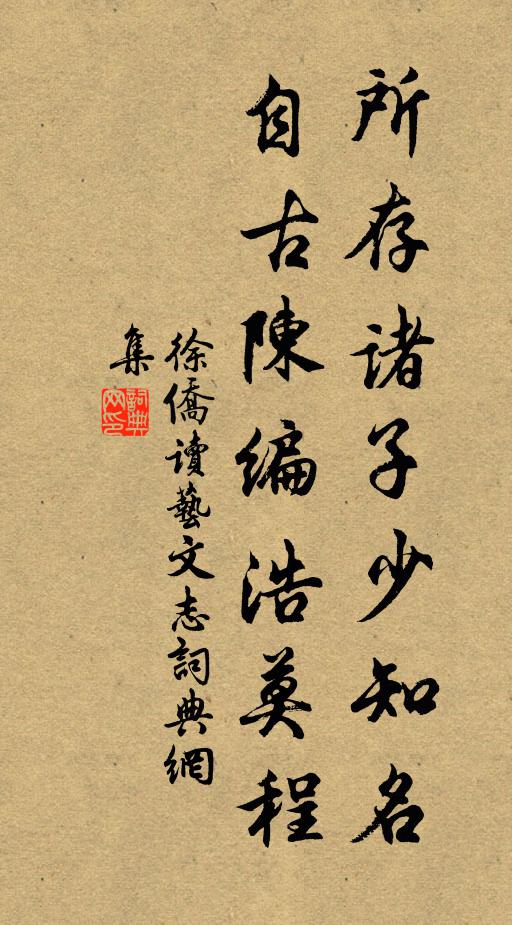 所存諸子少知名
自古陳編浩莫程
徐僑讀藝文志詞典網
集
詞典網印